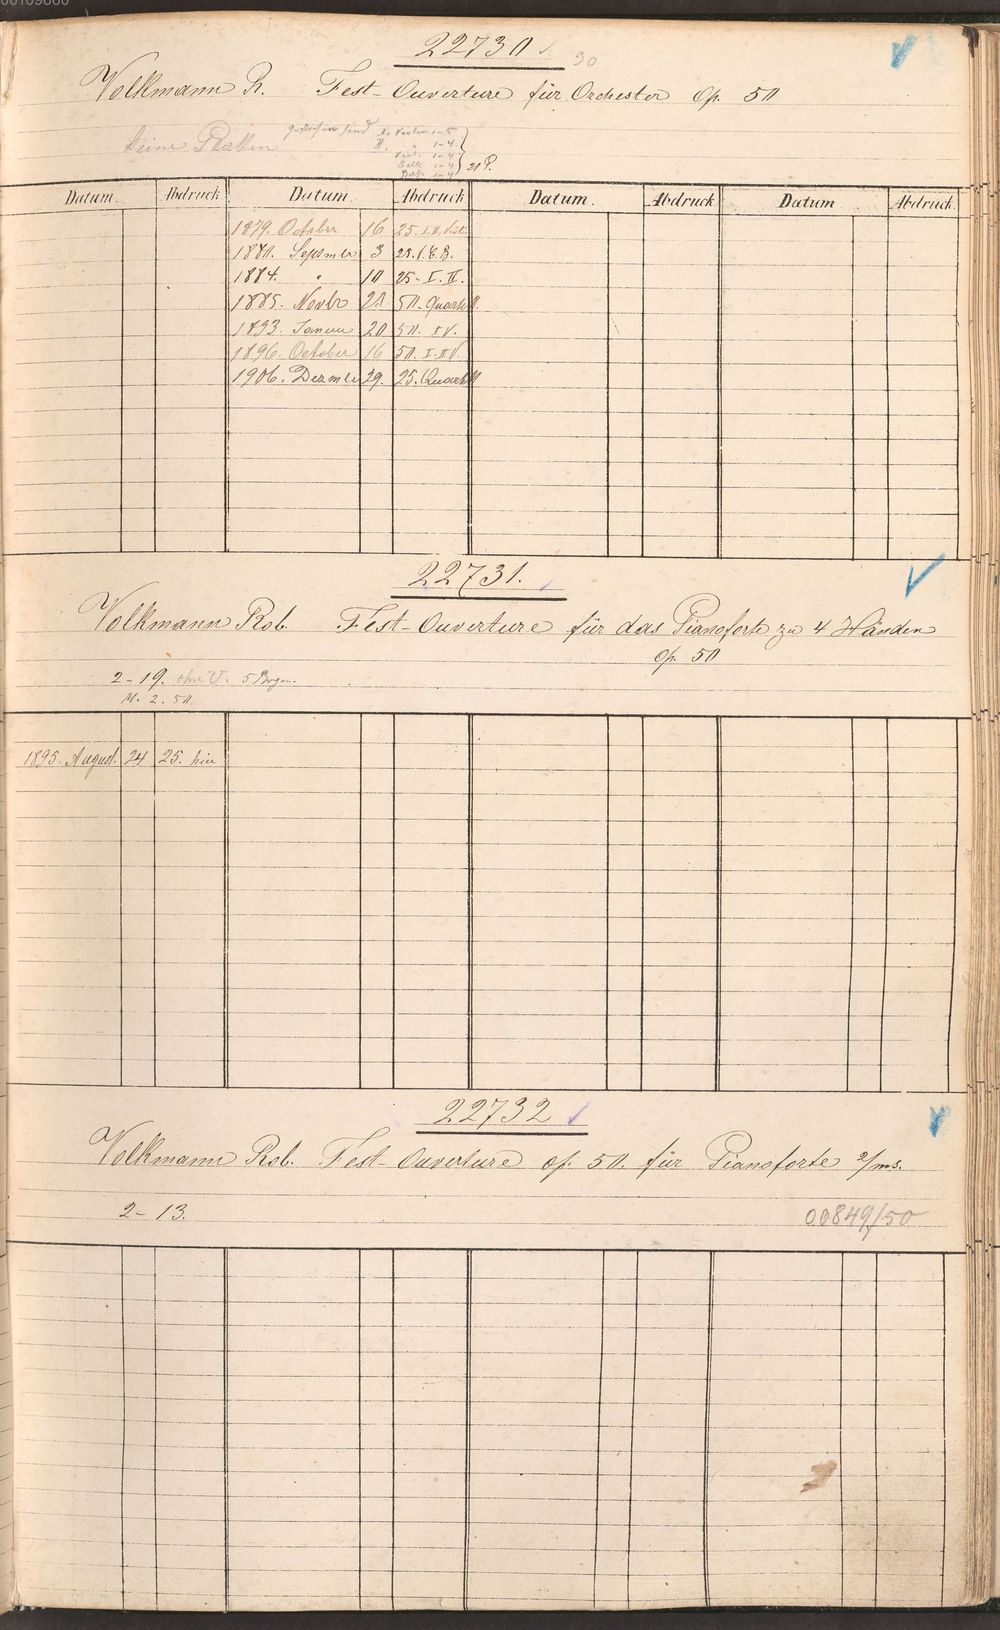 00109860
22730
30
Volkmann R. Fest-Ouverture für Orchester Op. 50
keine Platten gestochen sind I. Violin 1-5
II. " 1-4
Viola 1-4
Cello 1-4
Bass 1-4
21 P.
Datum. Abdruck Datum. Abdruck Datum. Abdruck Datum Abdruck
1879. October 16 25. I. II.
1880. Septmbr 3 25.
1884. " 10 25. I. II.
1885. Novbr 21 50. Quartett
1893. Januar 20 50. IV.
1896. October 16 50. I. II V.
1906. Dezmbr 29. 25. Quartett
22731.
Volkmann Rob. Fest-Ouverture für das Pianoforte zu 4 Händen
Op. 50
2-19. ohne V. 5 Bogen.
M. 2. 50.
1895. August. 24 25. hier
22732
Volkmann Rob. Fest-Ouverture op. 50. für Pianoforte 2/ms.
2-13.
00849/50